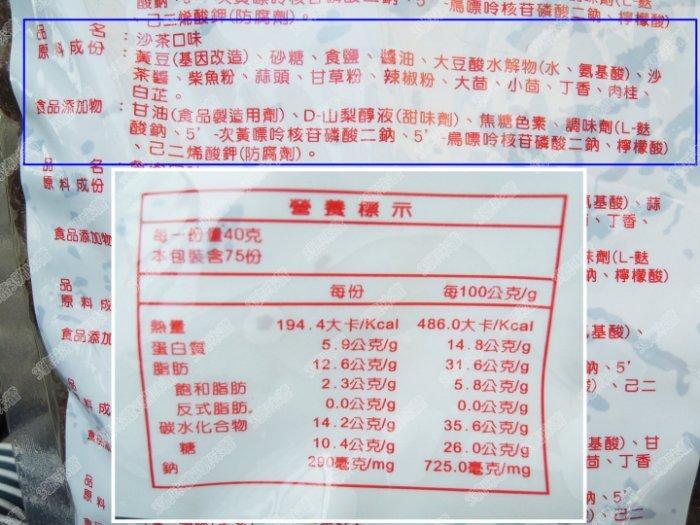 酸鈉、5'-次黃嘌呤核苷磷酸二鈉、5'-鳥嘌呤核苷磷酸二鈉、檸檬酸)
、己二烯酸鉀(防腐劑)。
品名：沙茶口味
原料成份：黃豆(基因改造)、砂糖、食鹽、醬油、大豆酸水解物(水、氨基酸)、沙
茶醬、柴魚粉、蒜頭、甘草粉、辣椒粉、大茴、小茴、丁香、肉桂、
白芷。
食品添加物：甘油(食品製造用劑)、D-山梨醇液(甜味劑)、焦糖色素、調味劑(L-麩
酸鈉、5'-次黃嘌呤核苷磷酸二鈉、5'-鳥嘌呤核苷磷酸二鈉、檸檬酸)
、己二烯酸鉀(防腐劑)。
品名
原料成份
基酸)、蒜
、丁香、
食品添加物
味劑(L-麩
鈉、檸檬酸)
品
原料成
氨基酸)、
食品添加
味劑(L-麩
鈉、5'
)、己二
基酸)、甘
茴、丁香
營養標示
每一份量40克
本包裝含75份
每份 每100公克/g
熱量 194.4大卡/Kcal 486.0大卡/Kcal
蛋白質 5.9公克/g 14.8公克/g
脂肪 12.6公克/g 31.6公克/g
飽和脂肪 2.3公克/g 5.8公克/g
反式脂肪 0.0公克/g 0.0公克/g
碳水化合物 14.2公克/g 35.6公克/g
糖 10.4公克/g 26.0公克/g
鈉 290毫克/mg 725.0毫克/mg